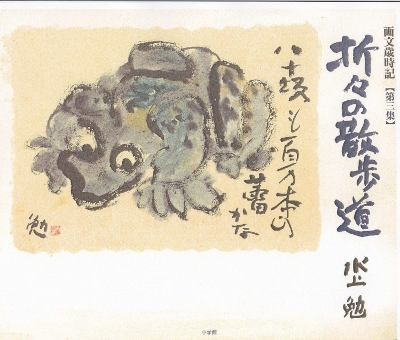 画文歳時記【第三集】
折々の散歩道
水上勉
八十路も百万本の
蕾
かな
勉
小学館